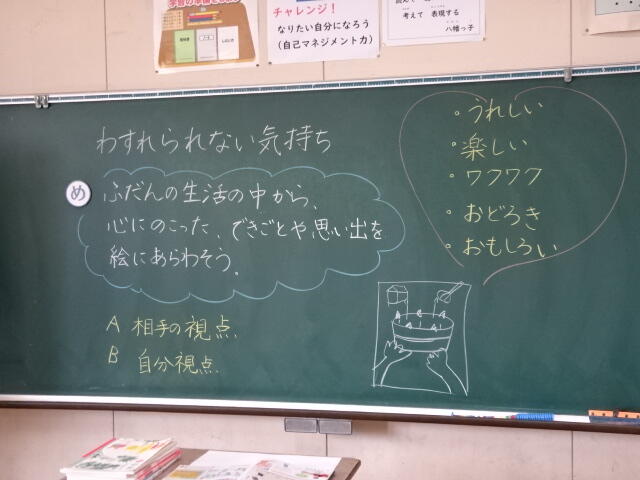 チャレンジ！
なりたい自分になろう
（自己マネジメント力）
考えて 表現する
八幡っ子
わすれられない気持ち
め
ふだんの生活の中から、
心にのこった、できごとや思い出を
絵にあらわそう。
A 相手の視点
B 自分視点
・うれしい
・楽しい
・ワクワク
・おどろき
・おもしろい